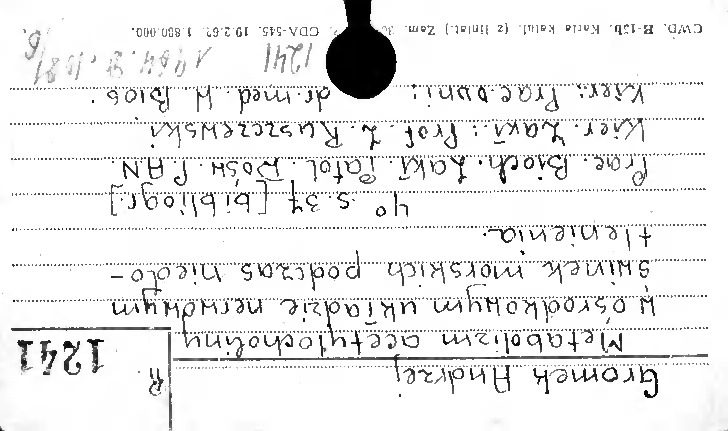 R
1241
Gromek Andrzej
Metabolizm acetylocholiny
w ośrodkowym układzie nerwowym
świnek morskich podczas niedo-
tlenienia.
4° s. 37 [bibliogr.]
Prac. Bioch. Zakł. Patol. Dośw. PAN.
Kier. Zakł.: Prof. Z. Ruszczewski
Kier. Pracowni: dr. med. W. Bios.
1241
CWD. H-15b. Karta katal. (z liniat.) Zam. CDA-545. 19.2.62. 1.850.000.